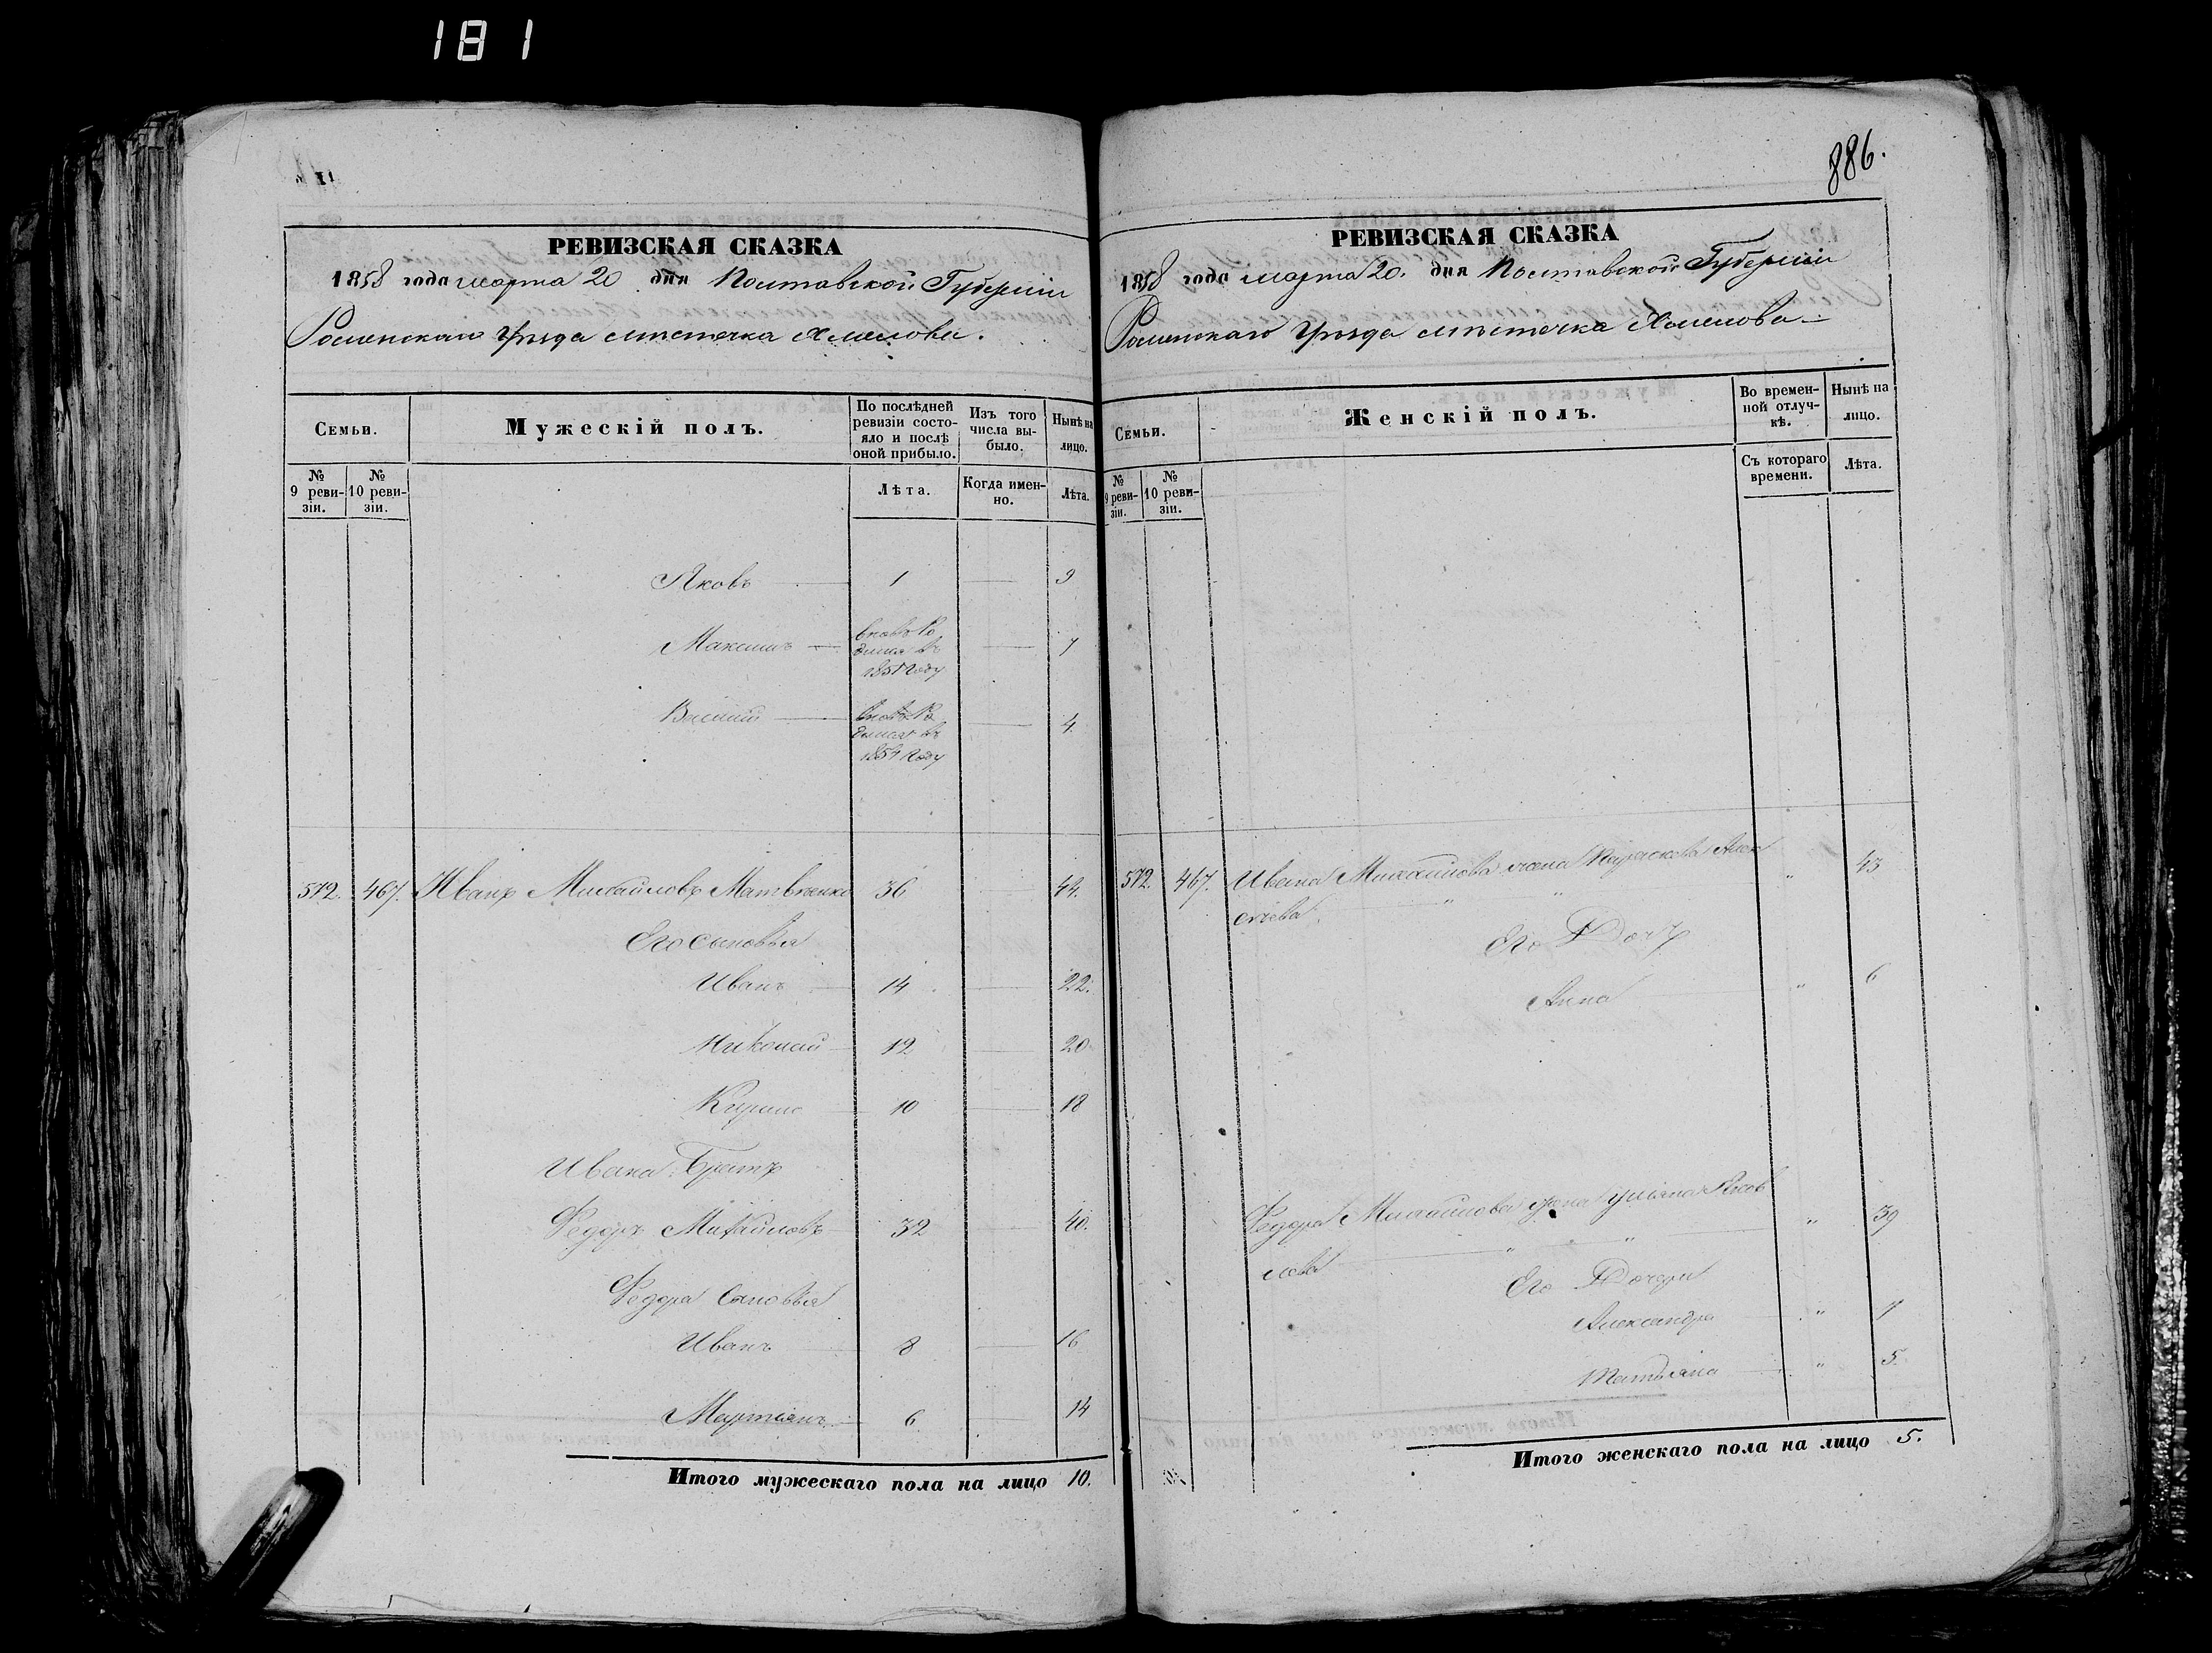 181
РЕВИЗСКАЯ СКАЗКА
1858 года марта 20 дня Полтавской Губерніи
Роменскаго Уѣзда мѣстечка Хмелова.
Семьи.
Мужескій полъ.
По послѣдней ревизіи состояло и послѣ оной прибыло.
Изъ того числа выбыло.
Нынѣ на лицо.
№ 9 ревизіи.
№ 10 ревизіи.
Лѣта.
Когда именно.
Лѣта.
Яковъ 1 9
Максимъ вновь Родился въ 1851 Году 7
Василій вновь Родился въ 1854 Году 4
572. 467. Иванъ Михайловъ Матвѣенко 36 44.
Его сыновья
Иванъ 14 22.
Николай 12 20
Кирило 10 18
Ивана Братъ
Федоръ Михайловъ 32 40.
Федора Сыновья
Иванъ 8 16
Мартинъ 6 14
Итого мужескаго пола на лицо 10.
886.
РЕВИЗСКАЯ СКАЗКА
1858 года марта 20. дня Полтавской Губерніи
Роменскаго Уѣзда мѣстечка Хмелова
Семьи.
Женскій полъ.
Во временной отлучкѣ.
Нынѣ на лицо.
№ 9 ревизіи.
№ 10 ревизіи.
Съ котораго времени.
Лѣта.
572. 467. Ивана Михайлова жена Параскова Алек " 43
сѣева " "
Его Дочь
Анна " 6
Федора Михайлова жена Уліяна Яков " 39
лева " "
Его Дочери
Александра " 7
Татьяна " 5.
Итого женскаго пола на лицо 5.